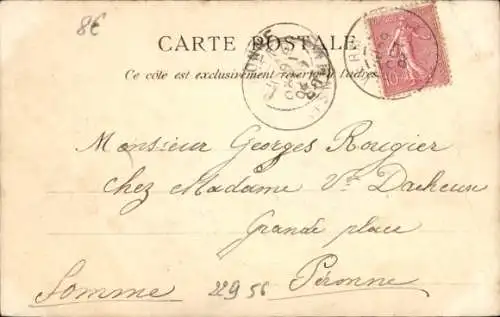 8€
CARTE POSTALE
Ce côté est exclusivement réservé à l'adresse
Monsieur Georges Rougier
chez Madame Vve Dacheux
Grande place
Péronne
Somme
22956